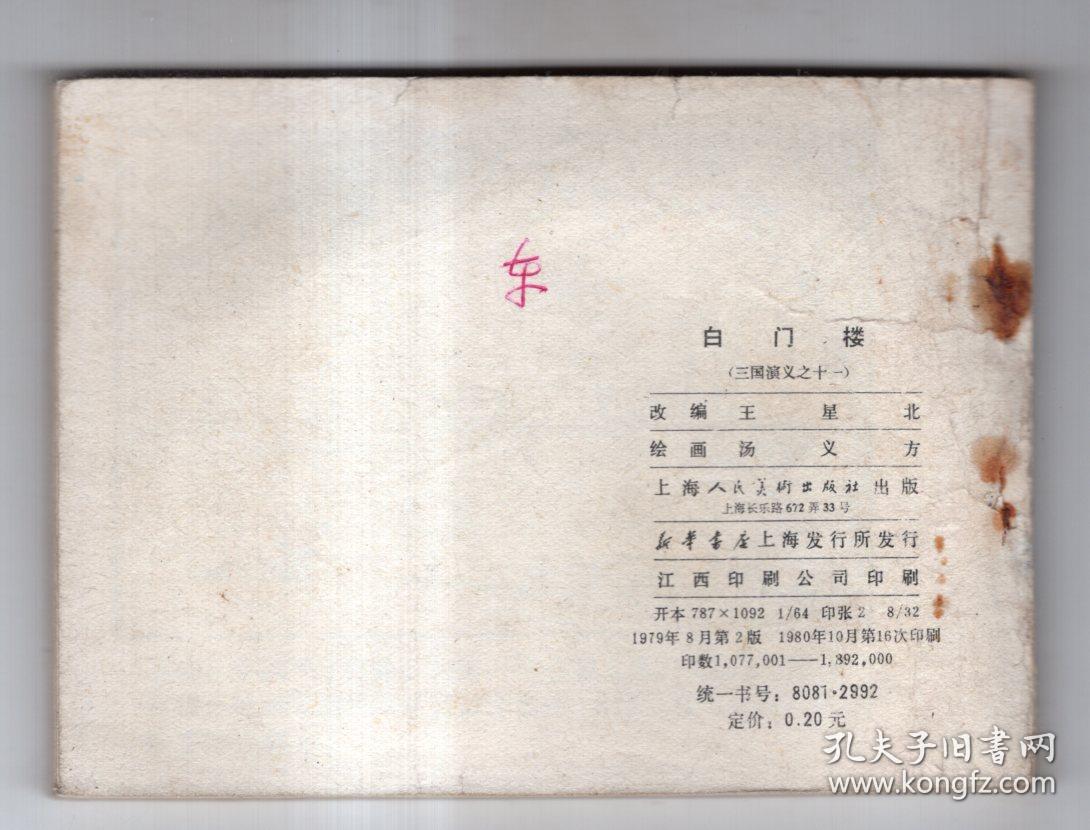 白门楼
(三国演义之十一)
改编 王星北
绘画 汤义方
上海人民美術出版社出版
上海长乐路672弄33号
新华书店上海发行所发行
江西印刷公司印刷
开本 787×1092 1/64 印张2 8/32
1979年8月第2版 1980年10月第16次印刷
印数1,077,001——1,392,000
统一书号: 8081·2992
定价: 0.20元
孔夫子旧書网
www.kongfz.com